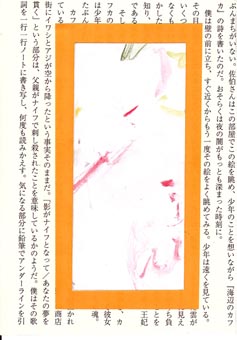 ぶんまちがいない。佐伯さんはこの部屋でこの絵を眺め、少年のことを想いながら『海辺のカフ
カ』の詩を書いたのだ。おそらくは夜の闇がもっとも深まった時刻に。
僕は壁の前に立ち、すぐ近くからもう一度その絵をよく眺めてみる。少年は遠くを見ている。
雲が
いくつ 見え
なくも ち負
かした とを
知り 王妃
そし 、カ
たぶん 彼女
は少年 魂。
ている かれ
商店
街にイワシとアジが空から降ったという事実そのままだ。『影がナイフとなって／あなたの夢を
貫く』という部分は、父親がナイフで刺し殺されたことを意味しているかのようだ。僕はその歌
詞を一行一行ノートに書き写し、何度も読みかえす。気になる部分に鉛筆でアンダーラインを引